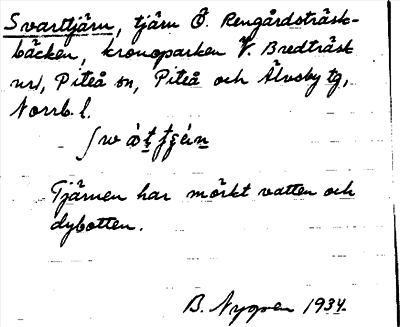 Svarttjärn, tjärn Ö. Rengårdsträsk-
bäcken, kronoparken V. Bredträsk
nr 1, Piteå sn, Piteå och Älvsby tg,
Norrb. l.
Tjärnen har mörkt vatten och
dybotten.
B. Nygren 1934.